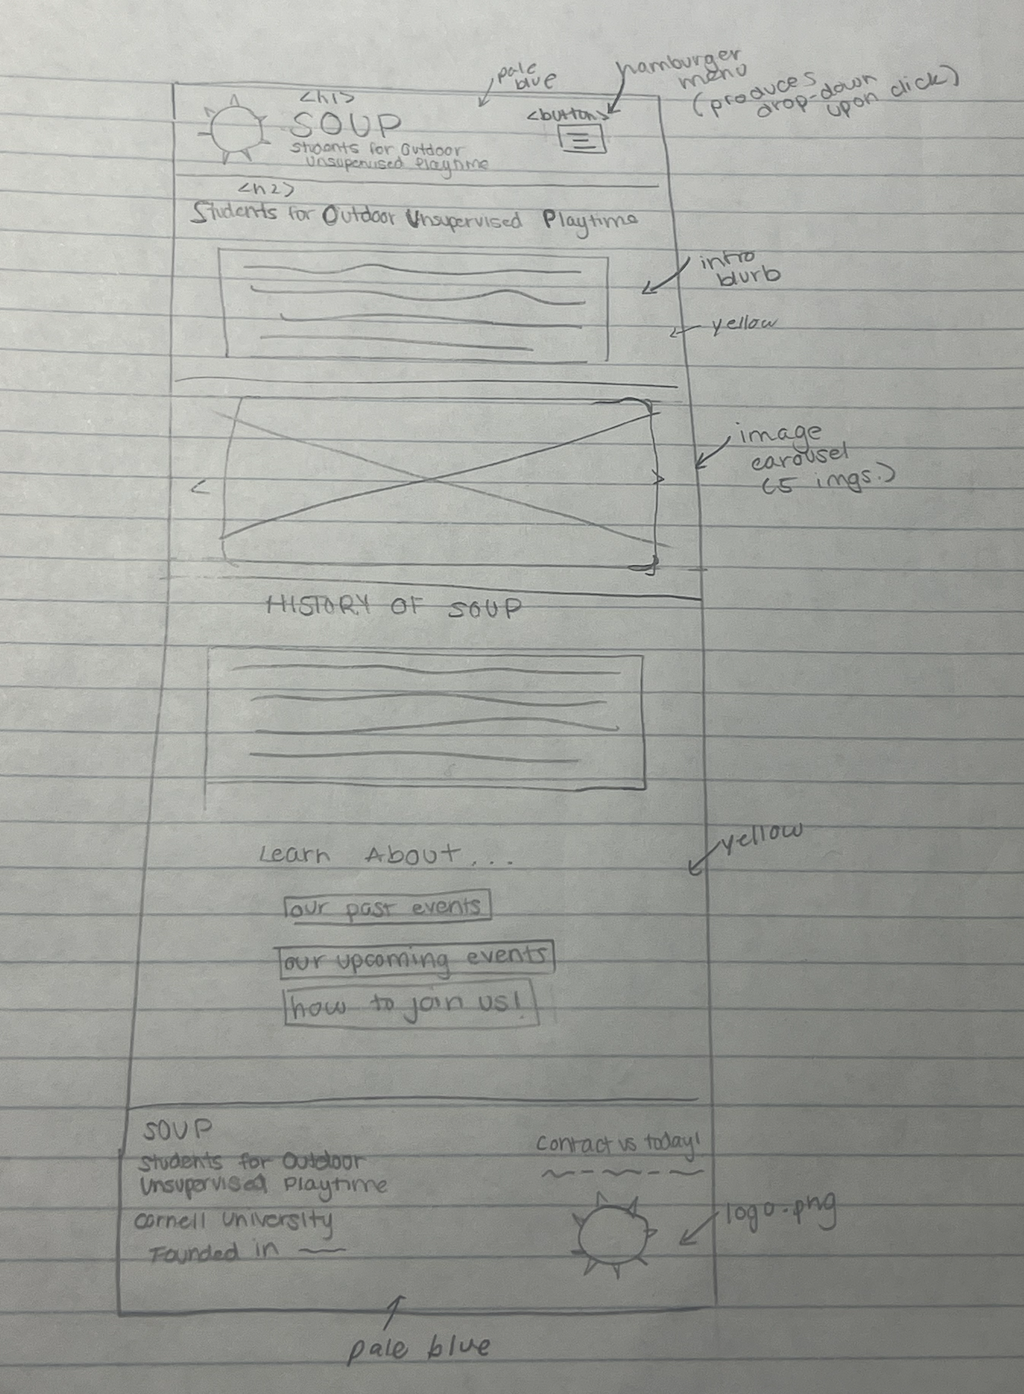 pale
blue
hamburger
menu
(produces
drop-down
upon click)
<h1>
SOUP
<button>
Students for Outdoor
Unsupervised Playtime
<h2>
Students for Outdoor Unsupervised Playtime
intro
blurb
yellow
<
>
image
carousel
(5 imgs.)
HISTORY OF SOUP
Learn About...
yellow
our past events
our upcoming events
how to join us!
SOUP
Students for Outdoor
Unsupervised Playtime
Cornell University
Founded in
Contact us today!
logo.png
pale blue